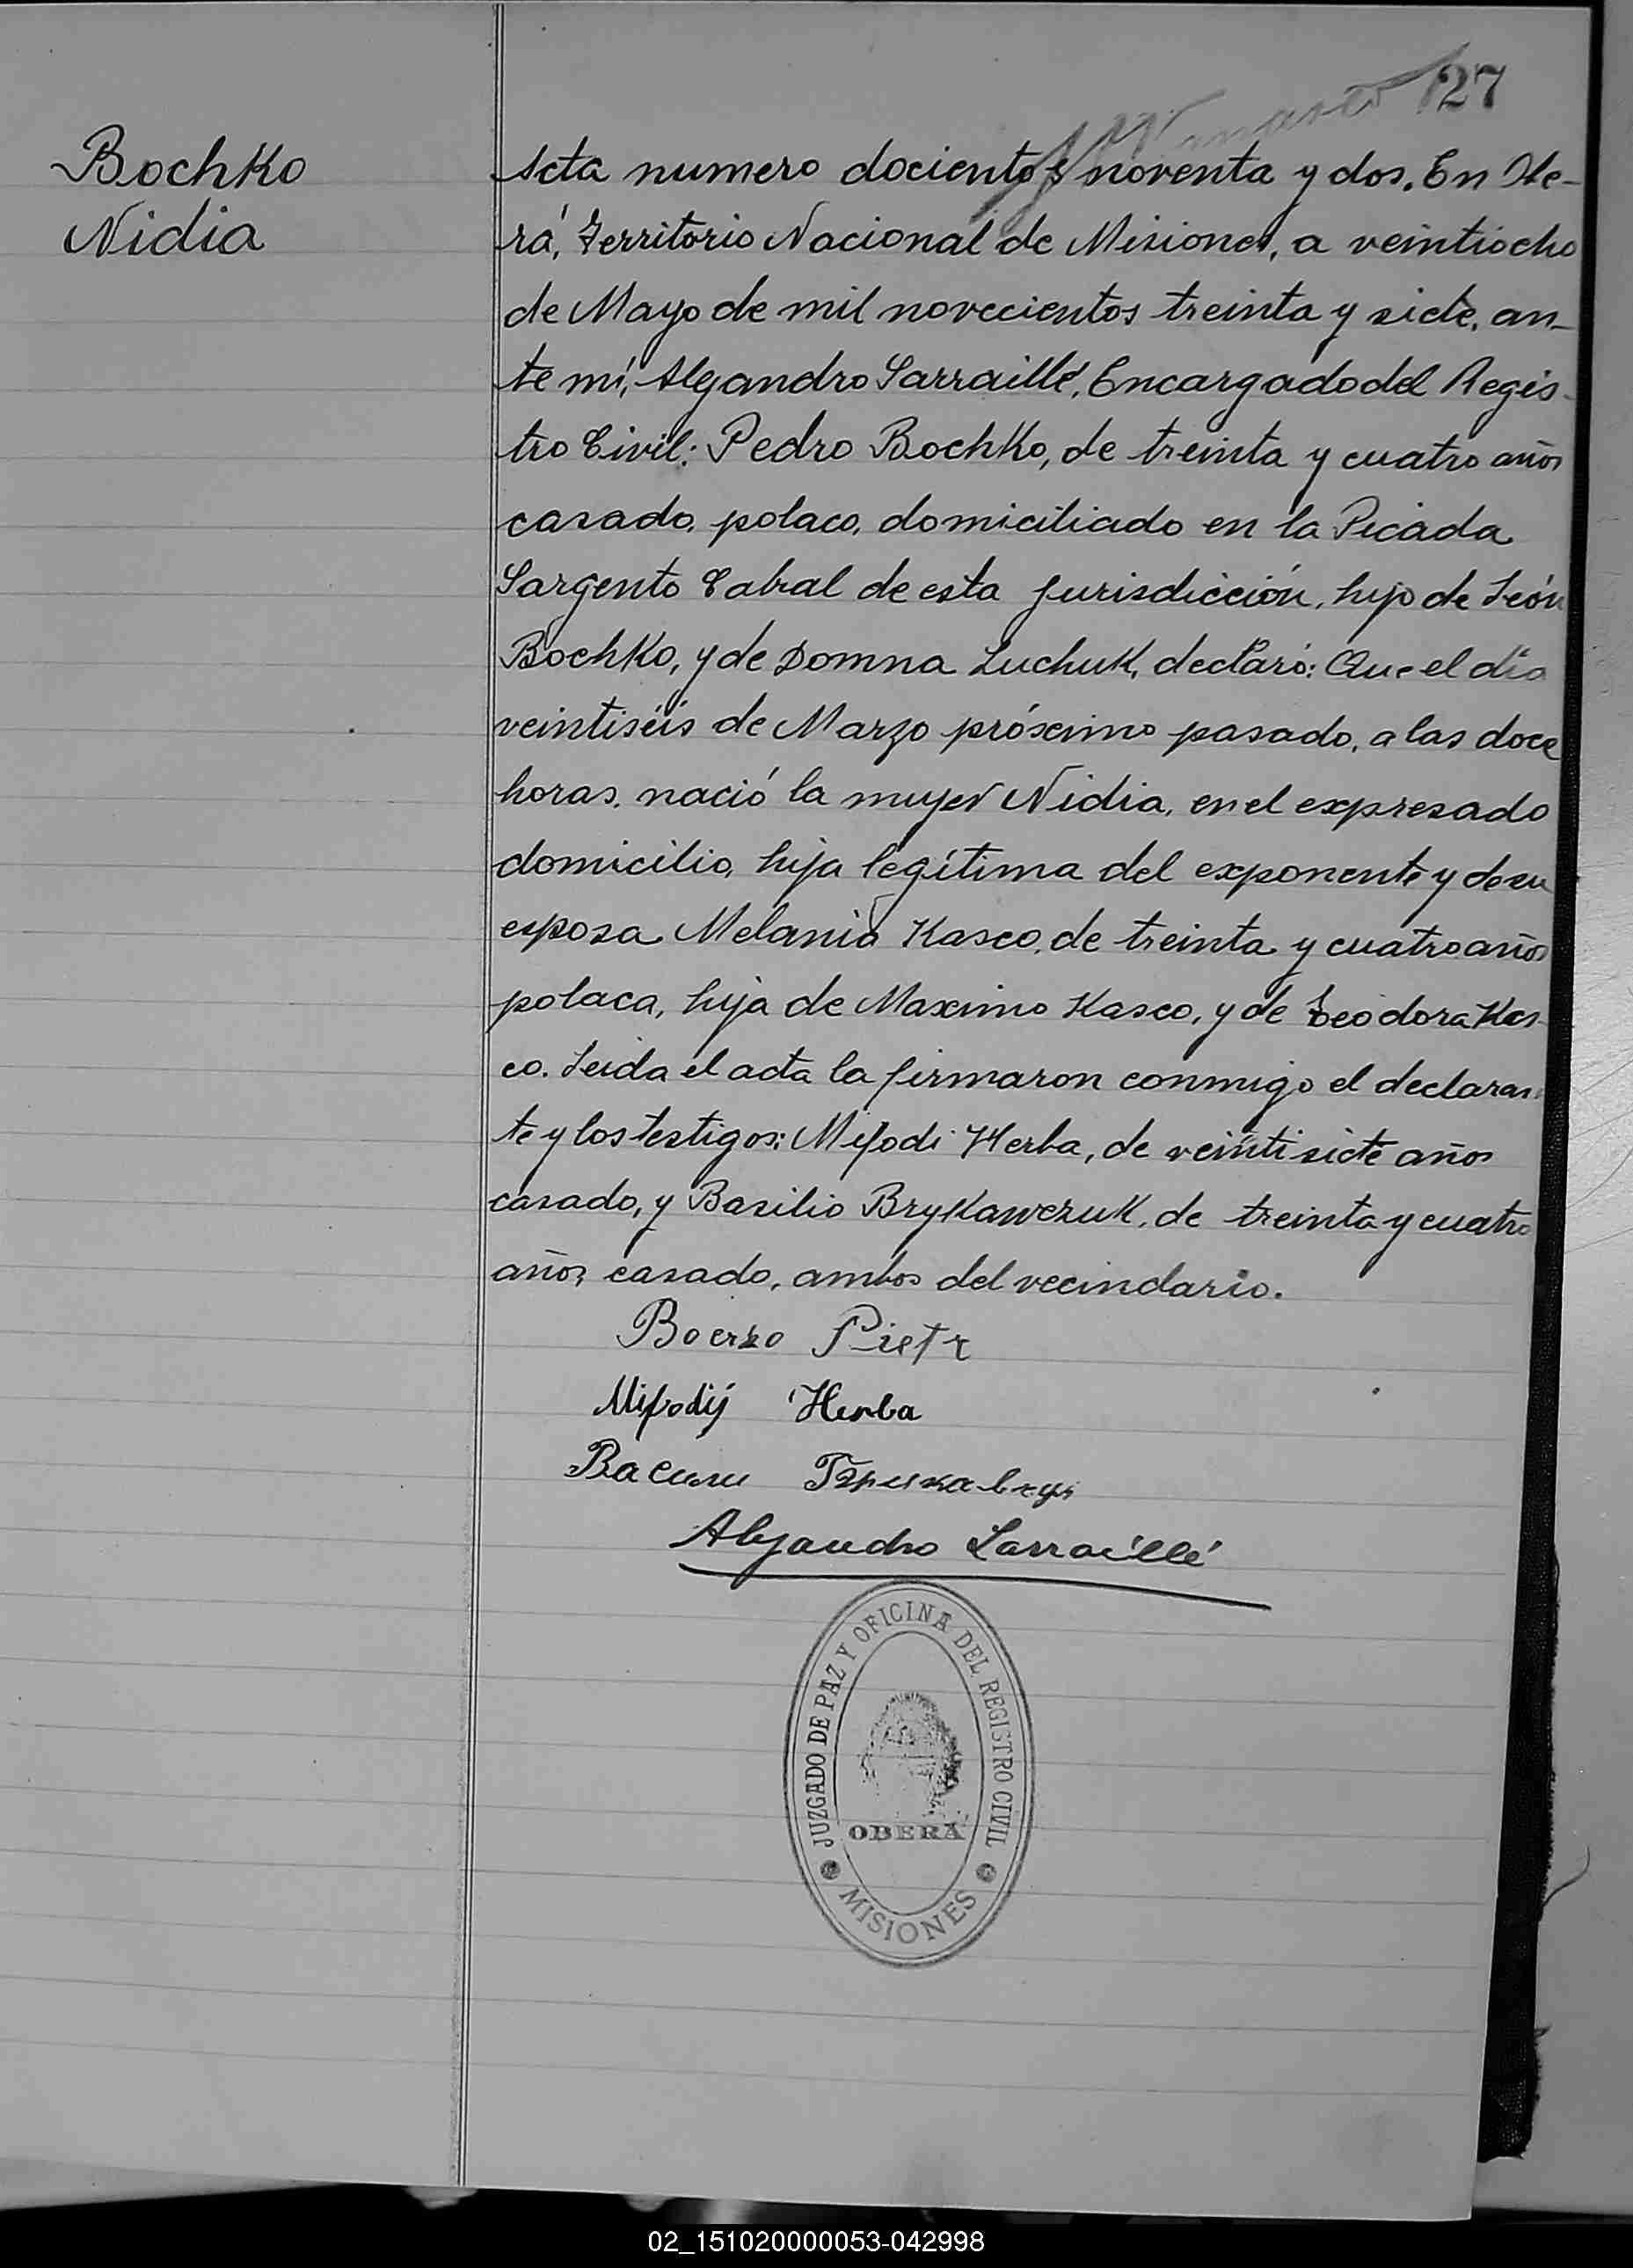 127
Bochko
Nidia
Acta numero docientos noventa y dos. En Obe-
rá, Territorio Nacional de Misiones, a veintiocho
de Mayo de mil novecientos treinta y siete, an-
te mí, Alejandro Sarraillé, Encargado del Regis-
tro Civil: Pedro Bochko, de treinta y cuatro años
casado, polaco, domiciliado en la Picada
Sargento Cabral de esta jurisdicción, hijo de León
Bochko, y de Domna Luchuk, declaró: Que el día
veintiséis de Marzo próximo pasado, a las doce
horas, nació la mujer Nidia, en el expresado
domicilio, hija legítima del exponente y de su
esposa Melania Kasco, de treinta y cuatro años
polaca, hija de Maximo Kasco, y de Teodora Kas-
co. Leida el acta la firmaron conmigo el declaran-
te y los testigos: Mifodi Herba, de veintisiete años
casado, y Basilio Brykawczuk, de treinta y cuatro
años, casado, ambos del vecindario.
Boczko Piotr
Mifodij Herba
Васили
Alejandro Sarraillé
JUZGADO DE PAZ Y OFICINA DEL REGISTRO CIVIL
OBERÁ
MISIONES
02_151020000053-042998